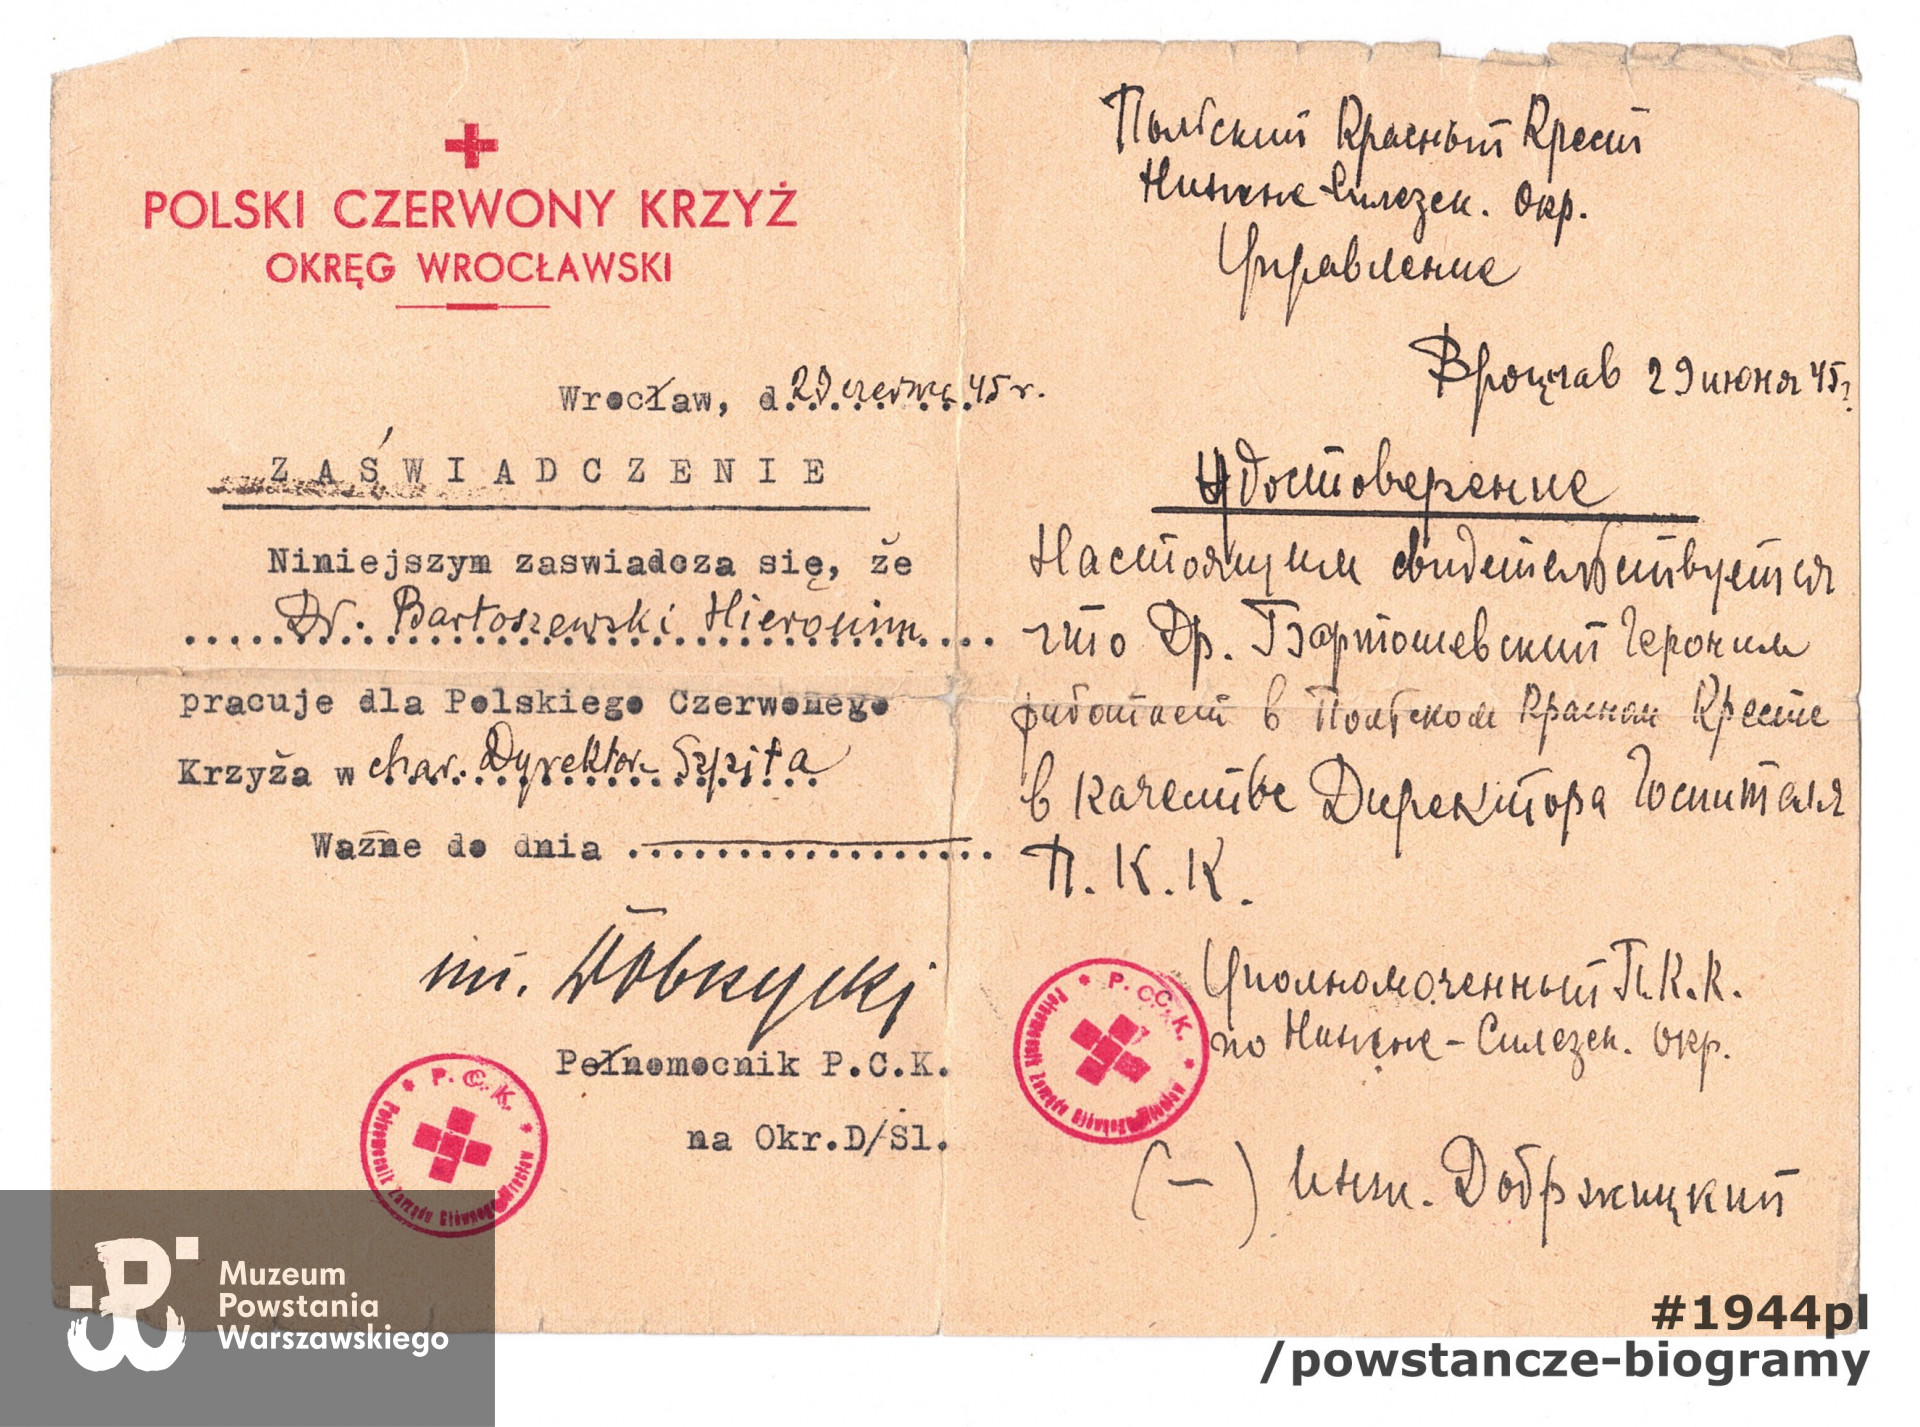 POLSKI CZERWONY KRZYŻ
OKRĘG WROCŁAWSKI
Wrocław, d. 29 czerwc 45 r.
ZAŚWIADCZENIE
Niniejszym zaswiadcza się, że
Dr. Bartoszewski Hieronim
pracuje dla Polskiego Czerwonego
Krzyża w char. Dyrektor. Szpita
Ważne do dnia
inż. Dobrzycki
Pełnomocnik P.C.K.
na Okr.D/Śl.
P.C.K.
Pełnomocnik Zarządu Głównego Wrocław
Польский Красный Крест
Нижне-Силезск. Окр.
Управление
Вроцлав 29 июня 45 г.
Удостоверение
Настоящим свидетельствуется
что Др. Бартошевский Героним
работает в Польском Красном Кресте
в качестве Директора Госпиталя
П.К.К.
Уполномоченный П.К.К.
по Нижне-Силезск. Окр.
(-) Инж. Добржицкий
P.C.K.
Pełnomocnik Zarządu Głównego Wrocław
Muzeum
Powstania
Warszawskiego
#1944pl
/powstancze-biogramy